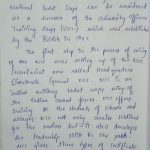 National Cadet Corps can be considered
as a successor of the University Officers
Training Corps (UOTC) which was established
by the British in 1942.
The first step in the process of setting
of the NCC was setting up of the NCC
Secretariat now called Headquarters
Directorate General NCC. NCC is an
Indian military cadet corps wing of
the Indian armed forces. NCC offers
training to the students of schools and
colleges. NCC not only creates soldiers
for the nation but it also develops
the leadership skills in the youth
NCC gives three types of certificate